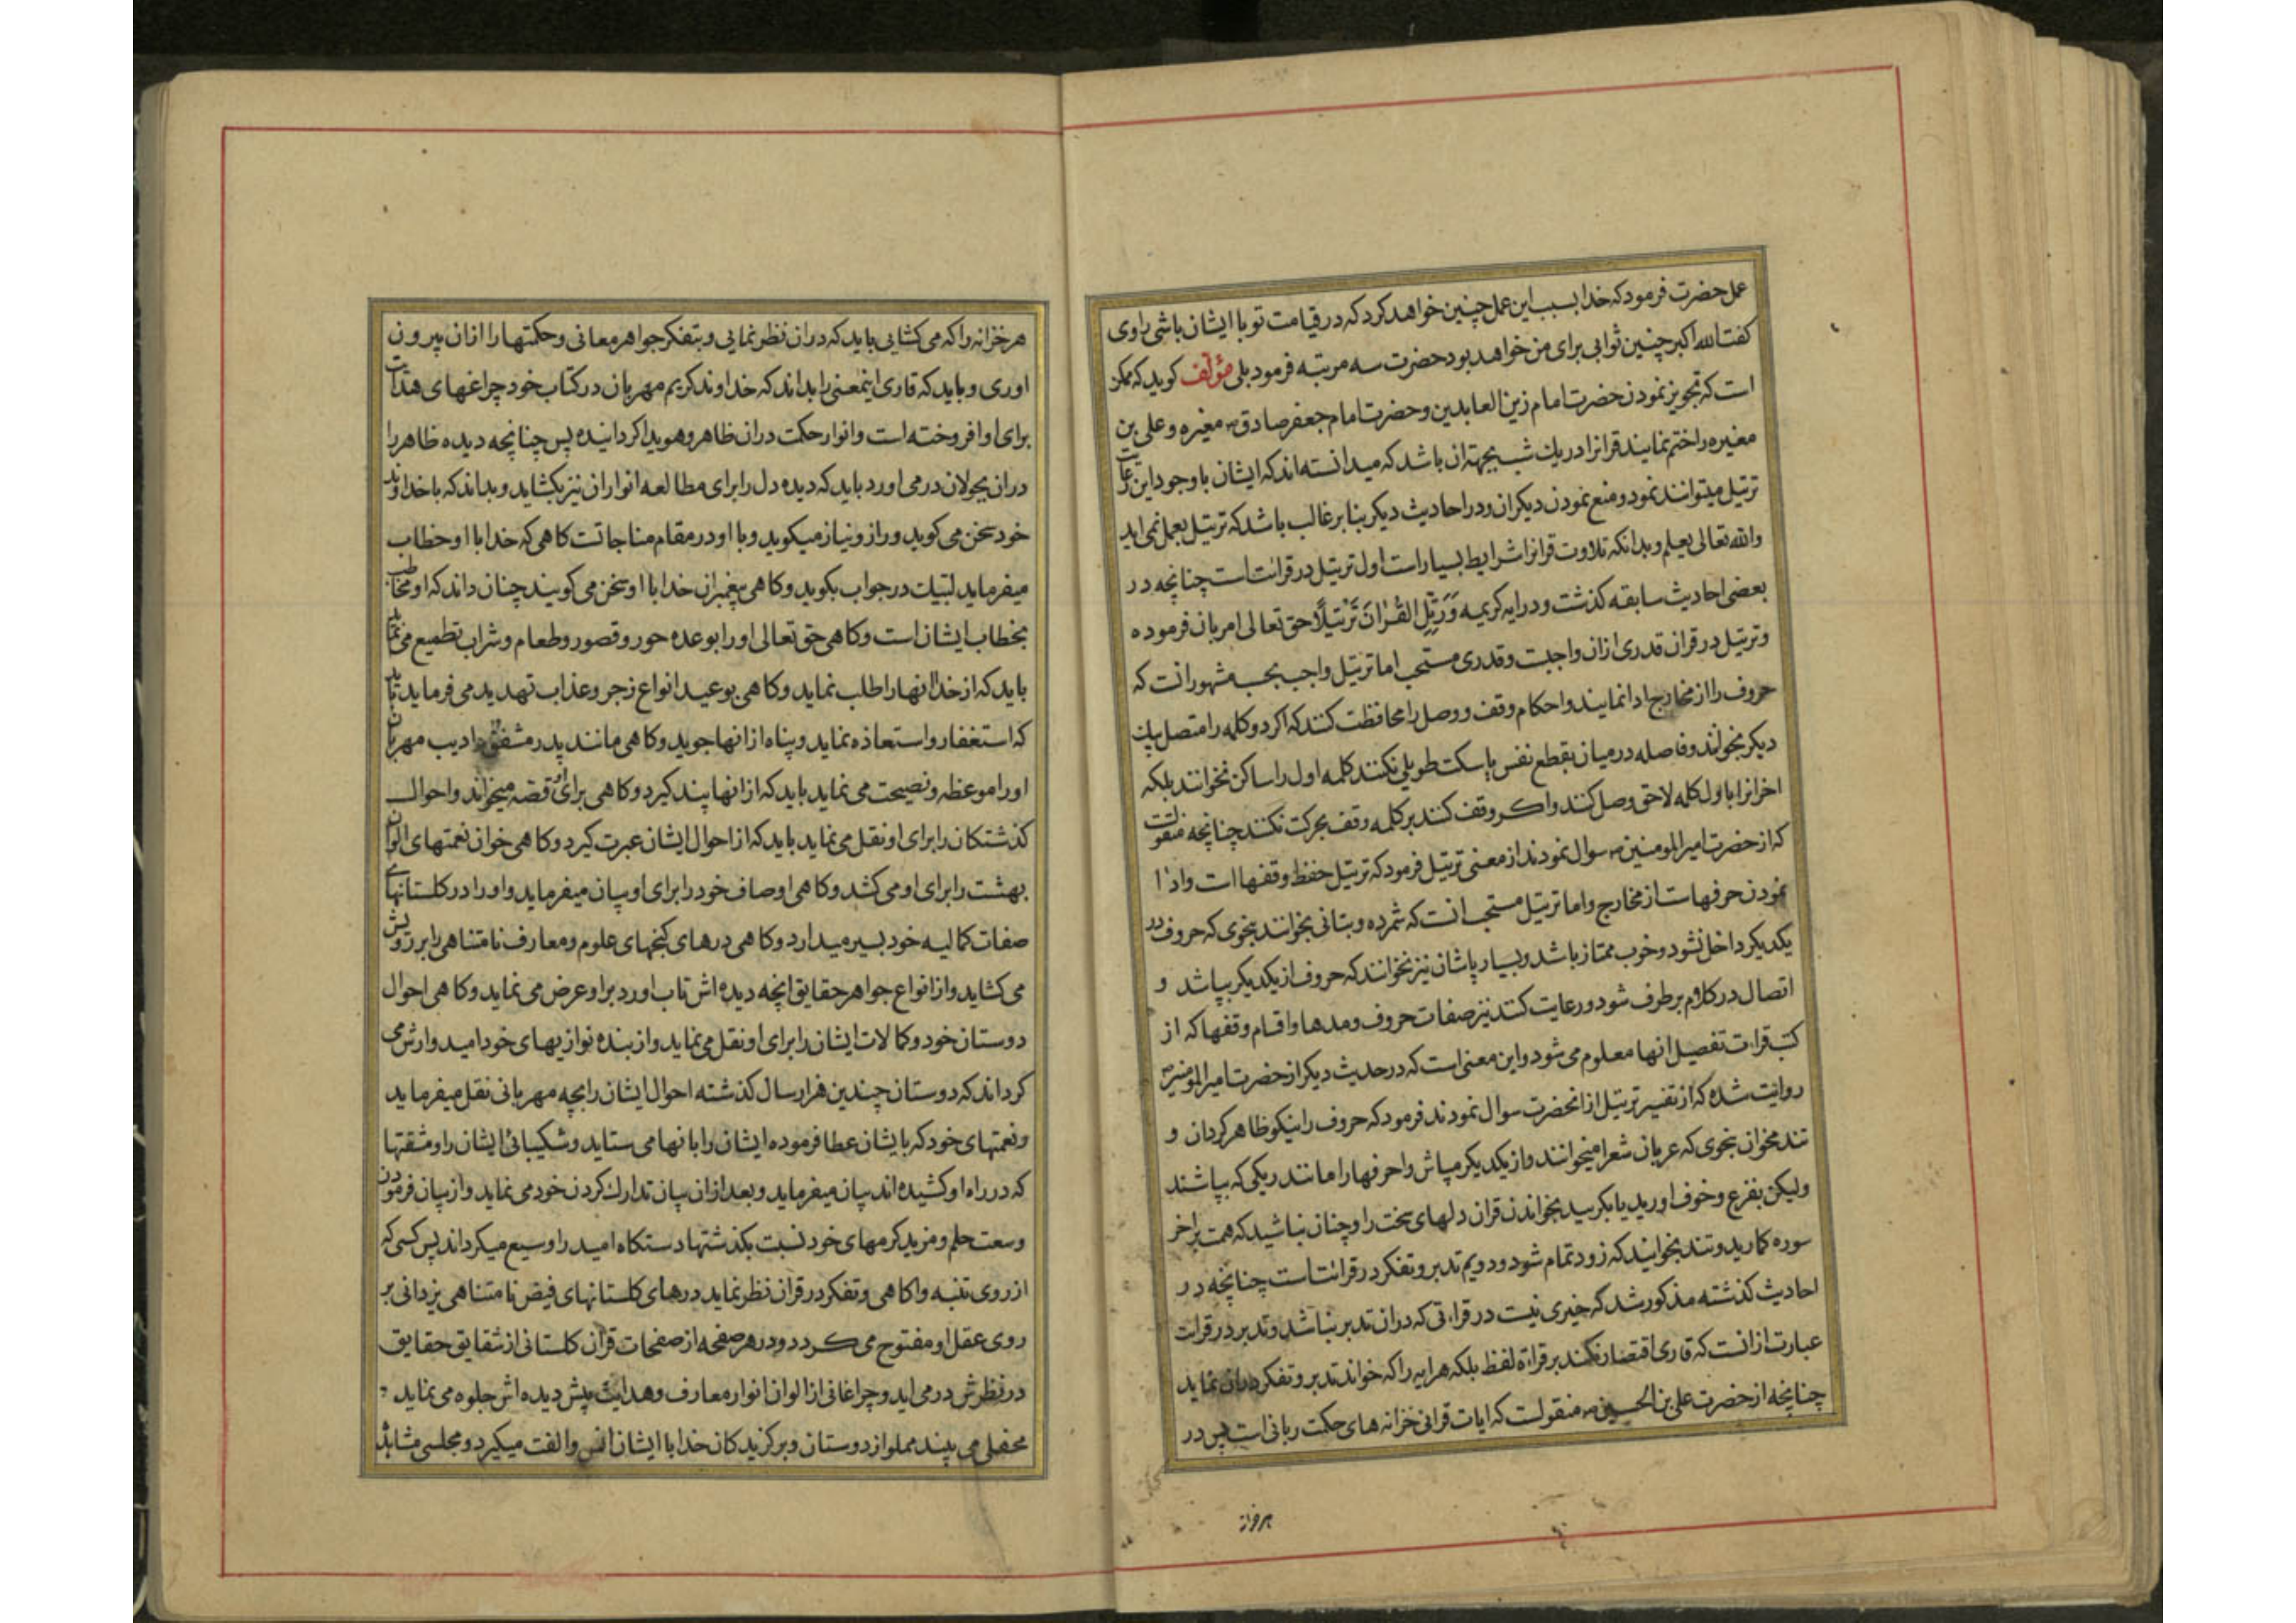 عمل حضرت فرمود که خدا بسبب این عمل چنین خواهد کرد که در قیامت تو با ایشان باشی راوی
کفت الله اکبر چنین ثوابی برای من خواهد بود حضرت سه مرتبه فرمود بلی مؤلف کوید که ممکن
است که تجویز نمودن حضرت امام زین العابدین و حضرت امام جعفر صادق ع مغیره و علی بن
مغیره را ختم نمایند قرانرا در یك شب بجهة ان باشد که میدانسته اند که ایشان با وجود این رعایت
ترتیل میتوانند نمود و منع نمودن دیکران و در احادیث دیکر بنا بر غالب باشد که ترتیل بعمل نمی اید
والله تعالی یعلم و بدانکه تلاوت قرانرا شرایط بسیار است اول ترتیل در قرائت است چنانچه در
بعضی احادیث سابقه کذشت و در ایه کریمه وَرَتِّلِ القُرْانَ تَرْتیلًا حق تعالی امر بان فرموده
و ترتیل در قران قدری ازان واجبست و قدری مستحب اما ترتیل واجب بحسب مشهور انست که
حروف را از مخارج ادا نمایند و احکام وقف و وصل را محافظت کنند که اکر دو کلمه را متصل بیك
دیکر بخوانند و فاصله در میان بقطع نفس یا سکت طویلی نکنند کلمه اول را ساکن نخوانند بلکه
اخر انرا با اول کلمه لاحق وصل کنند و اکر وقف کنند بر کلمه وقف بحرکت نکنند چنانچه منقولست
که از حضرت امیر المومنین ع سوال نمودند از معنی ترتیل فرمود که ترتیل حفظ وقفها است و ادا
نمودن حرفهاست از مخارج و اما ترتیل مستحب انست که شمرده و بتانی بخوانند بنحوی که حروف در
یکدیکر داخل نشود و خوب ممتاز باشد و بسیار پاشان نیز نخوانند که حروف از یکدیکر بپاشد و
اتصال در کلام بر طرف شود و رعایت کنند نیز صفات حروف و مدها و اقسام وقفها که از
کتب قراءت تفصیل انها معلوم می شود و این معنی است که در حدیث دیکر از حضرت امیر المومنین ع
روایت شده که از تفسیر ترتیل از انحضرت سوال نمودند فرمود که حروف را نیکو ظاهر کردان و
تند مخوان بنحوی که عربان شعرا میخوانند و از یکدیکر مپاش و احرفها را مانند ریکی که بپاشند
ولیکن بفزع و خوف اورید یا بکرید بخواندن قران دلهای سخت را و چنان نباشید که همت بر اخر
سوره کمارید و تند بخوانید که زود تمام شود و دویم تدبر و تفکر در قرائتست چنانچه در
احادیث کذشته مذکور شد که خیری نیست در قراءتی که در ان تدبر نباشد و تدبر در قراءت
عبارت از انست که قاری اقتصار نکند بر قراءة لفظ بلکه هر ایه را که خواند تدبر و تفکر در ان نماید
چنانچه از حضرت علی بن الحسین ع منقولست که ایات قرانی خزانه های حکمت ربانی است پس در
هر خزانه
هر خزانه را که می کشایی باید که در ان نظر نمایی و بتفکر جواهر معانی و حکمتها را از ان بیرون
اوری و باید که قاری اینمعنی را بداند که خداوند کریم مهربان در کتاب خود چراغهای هدایت
برای او افروخته است و انوار حکمت در ان ظاهر و هویدا کردانیده پس چنانچه دیده ظاهر را
در ان بجولان در می اورد باید که دیده دل را برای مطالعه انوار ان نیز بکشاید و بداند که با خداوند
خود سخن می کوید و راز و نیاز میکوید و با او در مقام مناجاتست کاهی که خدا با او خطاب
میفرماید لبیك در جواب بکوید و کاهی پیغمبران خدا با او سخن می کویند چنان داند که او مخاطب
بخطاب ایشان است و کاهی حق تعالی او را بوعده حور و قصور و طعام و شراب تطمیع می نماید
باید که از خدا انها را طلب نماید و کاهی بوعید انواع زجر و عذاب تهدید می فرماید باید
که استغفار و استعاذه نماید و پناه از انها جوید و کاهی مانند پدر مشفق و ادیب مهربان
او را موعظه و نصیحت می نماید باید که از انها پند کیرد و کاهی برای او قصه میخواند و احوال
کذشتکان را برای او نقل می نماید باید که از احوال ایشان عبرت کیرد و کاهی خوان نعمتهای الوان
بهشت را برای او می کشد و کاهی اوصاف خود را برای او بیان میفرماید و او را در کلستانهای
صفات کمالیه خود بسیر میدارد و کاهی درهای کنجهای علوم و معارف نامتناهی را بر رویش
می کشاید و از انواع جواهر حقایق انچه دیده اش تاب اورد بر او عرض می نماید و کاهی احوال
دوستان خود و کمالات ایشان را برای او نقل می نماید و از بنده نوازیهای خود امیدوارش می
کرداند که دوستان چندین هزار سال کذشته احوال ایشان را بچه مهربانی نقل میفرماید
و نعمتهای خود که بایشان عطا فرموده ایشان را بانها می ستاید و شکیبائی ایشان را و مشقتها
که در راه او کشیده اند بیان میفرماید و بعد از ان بیان تدارك کردن خود می نماید و از بیان فرمودن
وسعت حلم و مزید کرمهای خود نسبت بکذشتها دستکاه امید را وسیع میکرداند پس کسی که
از روی تنبه و اکاهی و تفکر در قران نظر نماید درهای کلستانهای فیض نامتناهی یزدانی بر
روی عقل او مفتوح می کردد و در هر صفحه از صفحات قران کلستانی از شقایق حقایق
در نظرش در می اید و چراغانی از الوان انوار معارف و هدایت پیش دیده اش جلوه می نماید و
محفلی می بیند مملو از دوستان و برکزیدکان خدا با ایشان انس و الفت میکیرد و مجلسی مشاهده